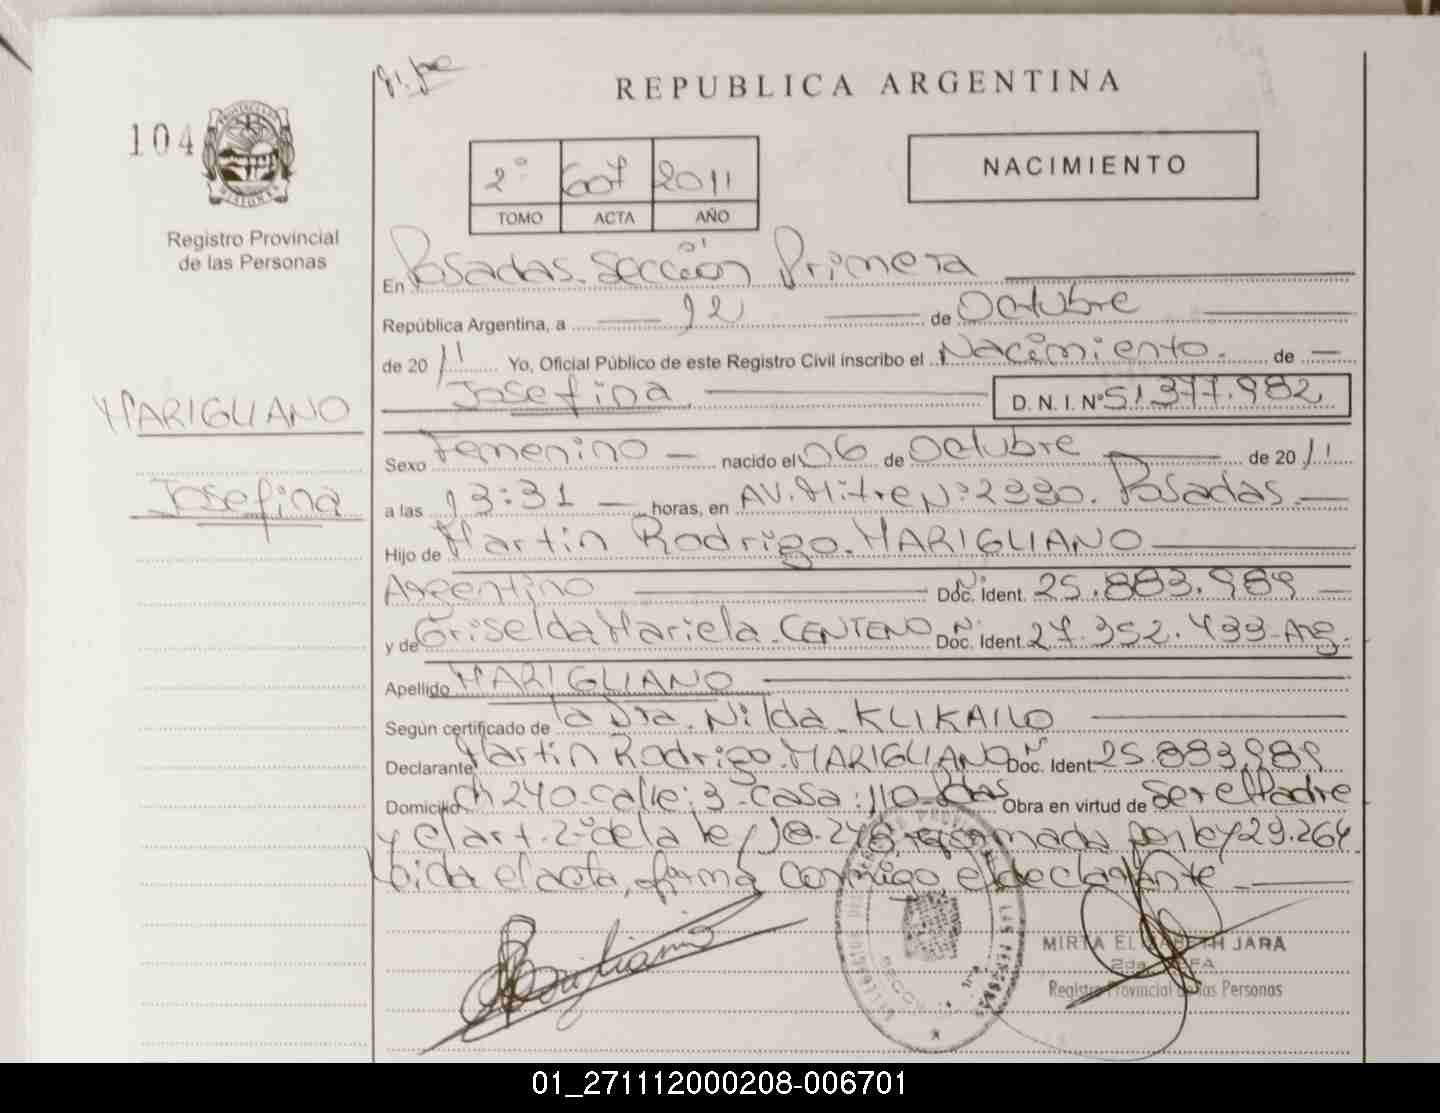 REPUBLICA ARGENTINA
104
2° 607 2011
TOMO ACTA AÑO
NACIMIENTO
Registro Provincial
de las Personas
En Posadas. Sección Primera
República Argentina, a 12 de Octubre
de 2011 Yo, Oficial Público de este Registro Civil inscribo el Nacimiento. de
Josefina D. N. I. N° 51.377.982
MARIGLIANO
Josefina
Sexo Femenino nacido el 06 de Octubre de 2011
a las 13:31 horas, en AV. Mitre N° 2330. Posadas.
Hijo de Martin Rodrigo. MARIGLIANO
Argentino Doc. Ident. 25.883.989
y de Griselda Mariela. CENTENO Doc. Ident. 27.352.433-Arg.
Apellido MARIGLIANO
Según certificado de la Dra. Nilda. KLIKAILO
Declarante Martin Rodrigo. MARIGLIANO Doc. Ident. 25.883.989
Domicilio Ch 240-calle: 3-casa: 110 Pdas Obra en virtud de Ser el Padre
y el art. 2° de la ley 18.248, reformada por ley 23.264
Leida el acta, firma conmigo el declarante
MIRTA ELIZABETH JARA
2da. JEFA
Registro Provincial de las Personas
01_271112000208-006701